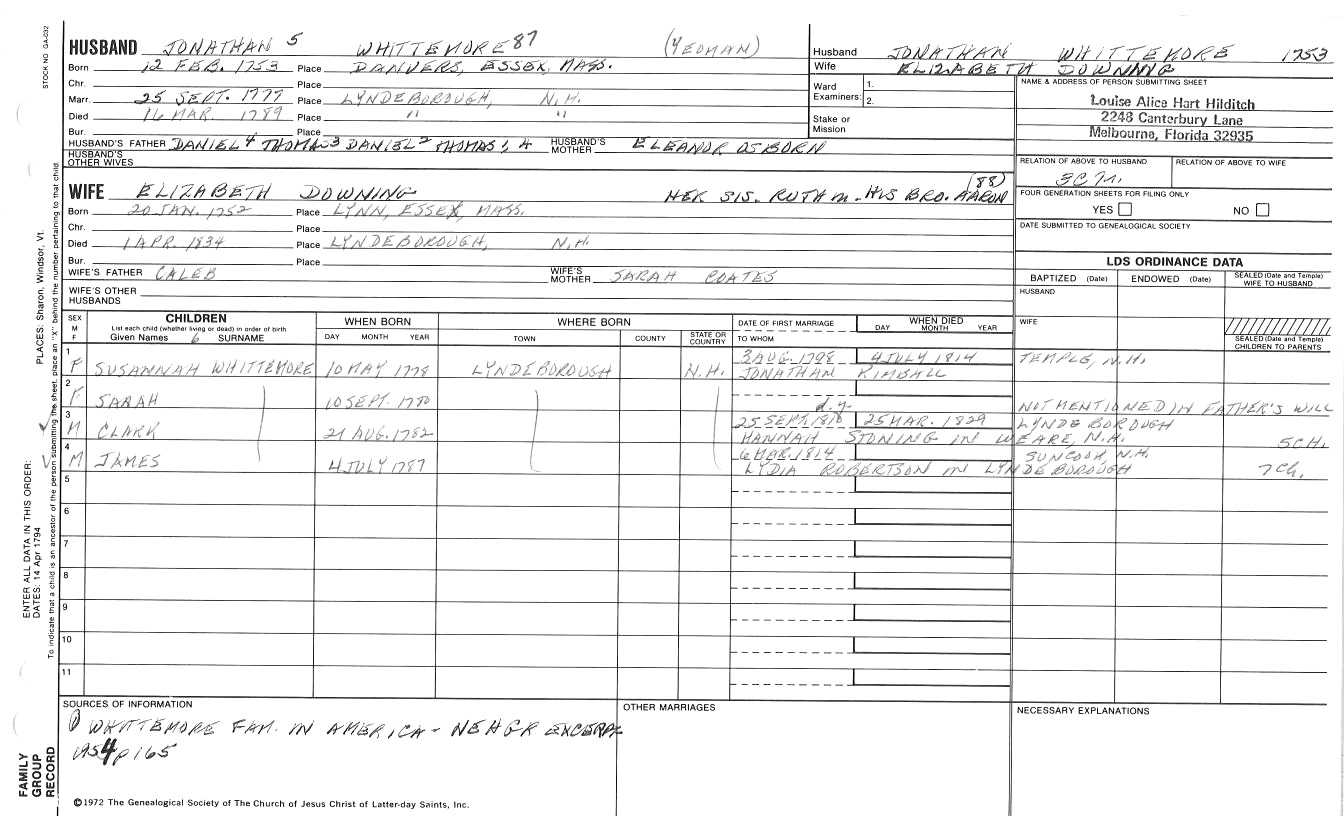 STOCK NO GA-032
HUSBAND JONATHAN 5 WHITTEMORE 87 (YEOMAN)
Born 12 FEB. 1753 Place DANVERS, ESSEX, MASS.
Chr. Place
Marr. 25 SEPT. 1777 Place LYNDEBOROUGH, N.H.
Died 16 MAR. 1789 Place " "
Bur. Place
HUSBAND'S FATHER DANIEL 4 THOMAS 3 DANIEL 2 THOMAS 1, 4 HUSBAND'S MOTHER ELEANOR OSBORN
HUSBAND'S OTHER WIVES
WIFE ELIZABETH DOWNING HER SIS. RUTH m. HIS BRO. AARON (88)
Born 20 JAN. 1752 Place LYNN, ESSEX, MASS.
Chr. Place
Died 1 APR. 1834 Place LYNDEBOROUGH, N.H.
Bur. Place
WIFE'S FATHER CALEB WIFE'S MOTHER SARAH COATES
WIFE'S OTHER HUSBANDS
Husband JONATHAN WHITTEMORE 1753
Wife ELIZABETH DOWNING
Ward Examiners: 1. 2.
Stake or Mission
NAME & ADDRESS OF PERSON SUBMITTING SHEET
Louise Alice Hart Hilditch
2248 Canterbury Lane
Melbourne, Florida 32935
RELATION OF ABOVE TO HUSBAND RELATION OF ABOVE TO WIFE
FOUR GENERATION SHEETS FOR FILING ONLY
YES NO
DATE SUBMITTED TO GENEALOGICAL SOCIETY
LDS ORDINANCE DATA
BAPTIZED (Date) ENDOWED (Date) SEALED (Date and Temple) WIFE TO HUSBAND
HUSBAND
WIFE
SEALED (Date and Temple) CHILDREN TO PARENTS
SEX M F
CHILDREN
List each child (whether living or dead) in order of birth
Given Names 6 SURNAME
WHEN BORN
DAY MONTH YEAR
WHERE BORN
TOWN COUNTY STATE OR COUNTRY
DATE OF FIRST MARRIAGE
TO WHOM
WHEN DIED
DAY MONTH YEAR
1 F SUSANNAH WHITTEMORE 10 MAY 1778 LYNDEBOROUGH N.H. 3 AUG. 1798 4 JULY 1814 TEMPLE, N.H.
JONATHAN KIMBALL
2 F SARAH 10 SEPT. 1780 d.y. NOT MENTIONED IN FATHER'S WILL
3 M CLARK 21 AUG. 1782 25 SEPT. 1810 25 MAR. 1829 LYNDEBOROUGH
HANNAH STONING IN WEARE, N.H. 5 CH.
4 M JAMES 4 JULY 1787 6 MAR. 1814 SUNCOOK, N.H.
LYDIA ROBERTSON IN LYNDEBOROUGH 7 CH.
5
6
7
8
9
10
11
SOURCES OF INFORMATION
1 WHITTEMORE FAM. IN AMERICA - NEHGR EXCERPT
1954 p 165
OTHER MARRIAGES
NECESSARY EXPLANATIONS
©1972 The Genealogical Society of The Church of Jesus Christ of Latter-day Saints, Inc.
FAMILY GROUP RECORD
ENTER ALL DATA IN THIS ORDER:
DATES: 14 Apr 1794
PLACES: Sharon, Windsor, Vt.
To indicate that a child is an ancestor of the person submitting the sheet, place an "X" behind the number pertaining to that child.